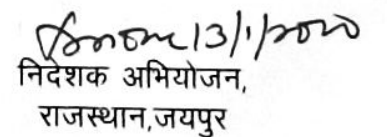 13/1/2020
निदेशक अभियोजन,
राजस्थान,जयपुर